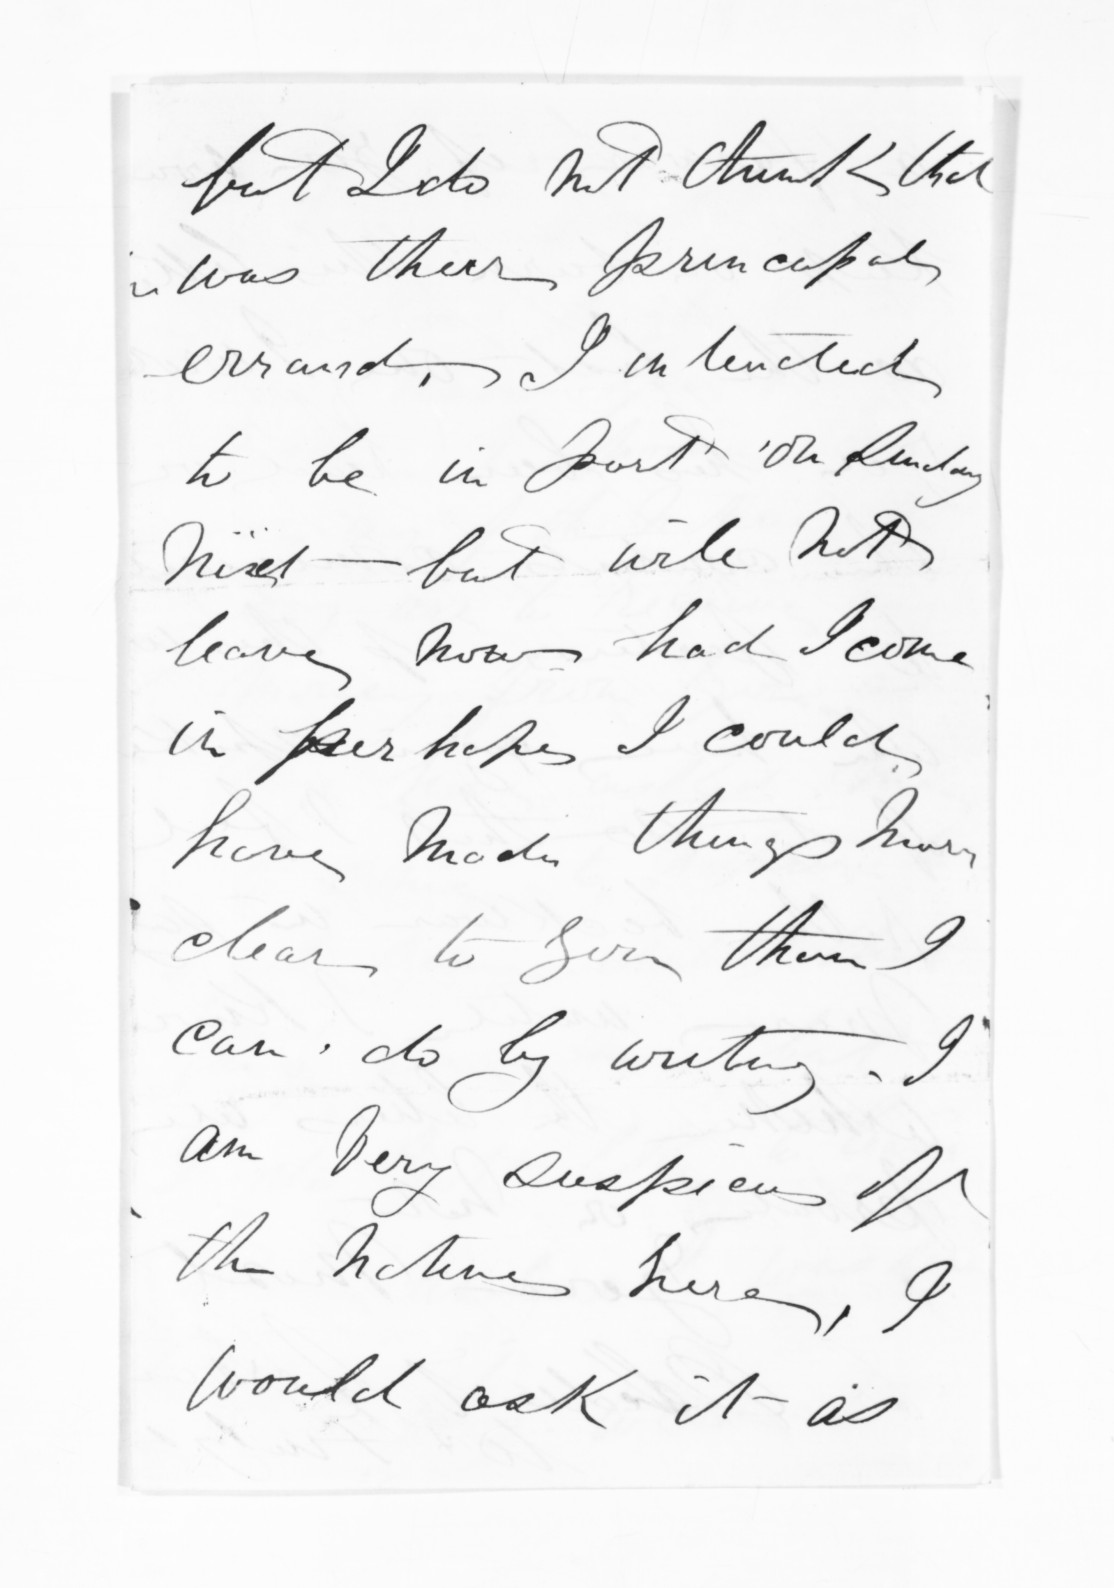 but I do not think that
was their principal
errand, I intended
to be in port on Sunday
next — but will not
leave now had I come
in perhapes I could
have made things more
clear to you than I
can do by writing. I
am very suspicius of
the natives here, I
would ask it as